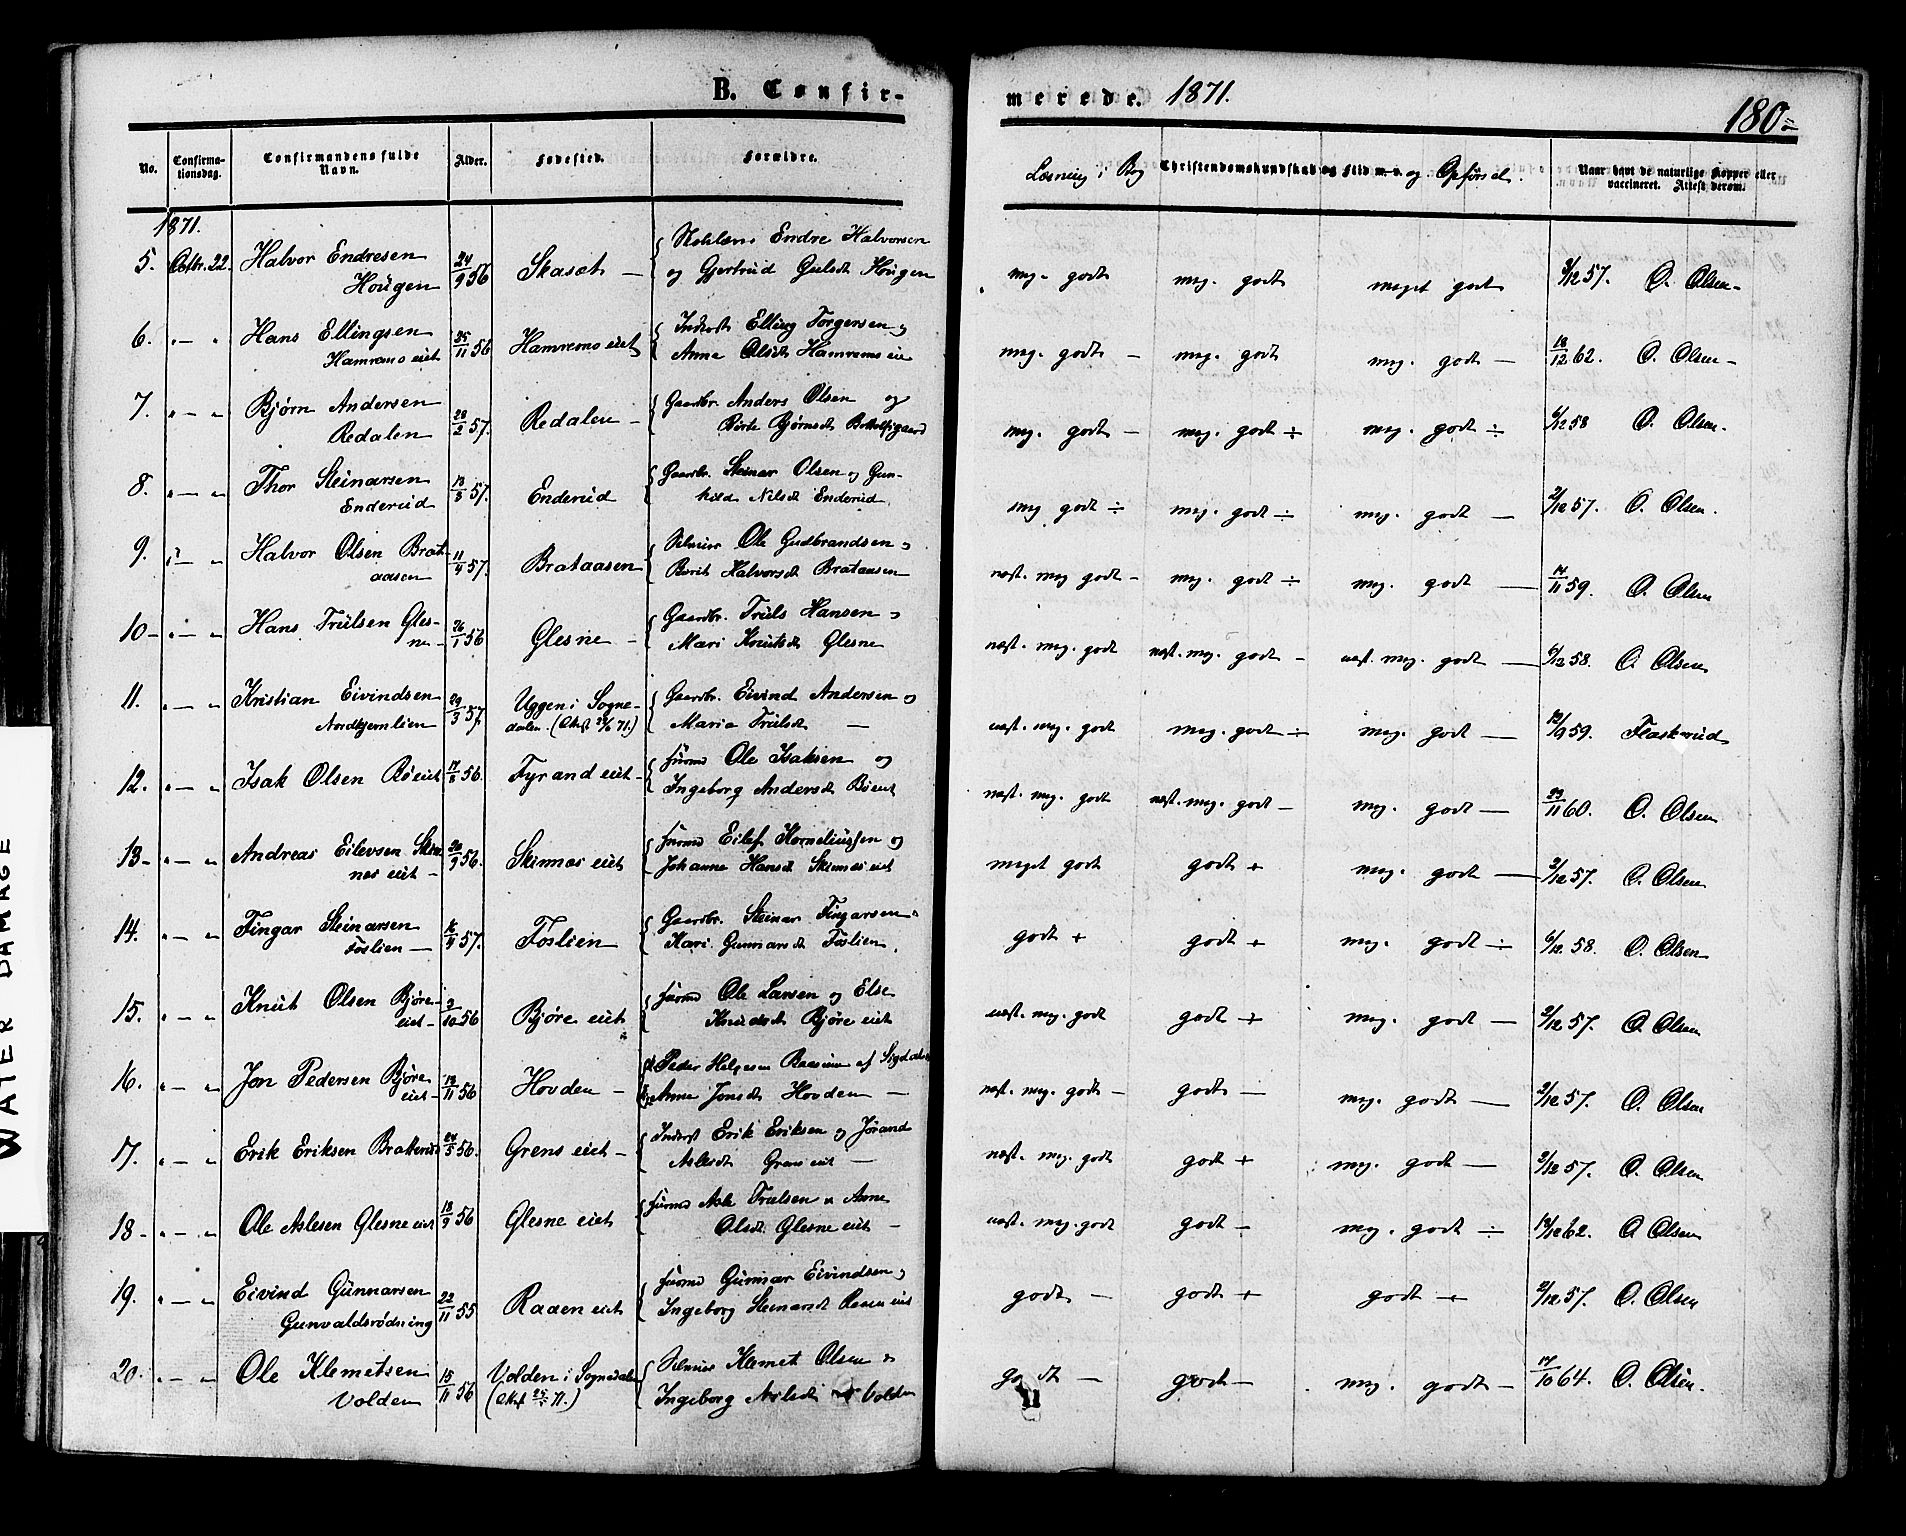 B. Confir-
merede. 1871.
180
No. Confirma-tionsdag. Confirmandens fulde Navn. Alder. Fødested. Forældre. Læsning i Bog Christendomskundskab og Flid m. v. og Opførsel. Naar havt de naturlige Kopper eller vaccineret. Attest derom.
1871.
5. Octbr. 22. Halvor Endresen 24/9 56 Skaset — og Gjertrud Gulsdt Hougen meg. godt meg. godt meget godt 2/12 57. O. Olsen
Endre Halvorsen
Hougen
6. " — " Hans Ellingsen 25/11 56 Hamremo eiet Inderst Elling Torgersen og meg. godt — meg. godt meg. godt — 18/12 62. O. Olsen
Hamremo eiet Anne Olsdt Hamremo eie
7. " — " Bjørn Andersen 28/2 57. Redalen — Gaardbr. Anders Olsen og meg. godt — meg. godt ÷ meg. godt ÷ 6/12 58 O. Olsen.
Redalen Birte Bjørnsdt
8. " — " Thor Steinarsen 13/5 57. Enderud Gaardbr. Steinar Olsen og Gun- meg godt ÷ meg. godt ÷ meg. godt — 2/12 57. O. Olsen.
Enderud hild Nilsdt Enderud
9. " — " Halvor Olsen Brat- 11/4 57. Brataasen Selveier Ole Gudbrandsen og næst. meg godt - meg. godt ÷ meg. godt — 14/11 59. O. Olsen
aasen Berit Halvorsdt Brataasen
10 - " — " Hans Trulsen Gles- 26/1 56 Glesne — Gaardbr. Truls Hansen og næst. meg. godt næst. meg. godt - næst. meg. godt — 6/12 58. O. Olsen
ne - Mari Knutsdt Glesne
11. " — " Kristian Eivindsen 29/3 57. Uggen i Sogne- Gaardbr. Eivind Andersen og næst. meg. godt meg. godt ÷ meg. godt — 12/9 59. Flaskerud
Nordbjernlien dalen. Maria Trulsdt —
12. " — " Isak Olsen Bøeiet 17/8 56. Fyrand eiet - Husmd Ole Isaksen og næst. meg. godt næst. meg. godt - meg. godt — 23/11 60. O. Olsen
Ingeborg Andersdt Bøeiet
13 - " — " Andreas Eilevsen Skin- 20/9 56. Skinnes eiet Husmd Eilef Korneliussen og meget godt godt + meg. godt — 2/12 57. O. Olsen
nes eiet - Johanne Hansdt Skinnes eiet
14. " — " Fingar Steinarsen 16/4 57. Foslien Gaardbr. Steinar Fingarsen godt + godt + meg. godt ÷ 6/12 58. O. Olsen
Foslien — Kari Gunnarsdt Foslien
15. " — " Knut Olsen Bjøre- 9/10 56 Bjøre eiet Husmd Ole Larsen og Else næst. meg. godt godt + meg. godt — 2/12 57. O. Olsen
eiet - Knudsdt Bjøre eiet
16. " — " Jon Pedersen Bjøre 12/11 56 Hovden — Peder Helgesen af Sigdal næst. meg. godt - godt — meg. godt — 2/12 57. O. Olsen
eiet - Anne Jonsdt Hovden —
17. " — " Erik Eriksen Bratterud 24/5 56. Grens eiet - Inderst Erik Eriksen og Jørand næst. meg. godt godt + meg. godt — 2/12 57. O. Olsen
Aslesdt Grens eiet —
18 - " — " Ole Aslesen Glesne eiet 18/9 56 Glesne eiet Husmd Asle Trulsen og Anne næst. meg. godt godt - meg. godt ÷ 18/12 62. O Olsen
Olsdt. Glesne eiet -
19. " — " Eivind Gunnarsen 22/11 55 Raaen eiet Husmd Gunnar Eivindsen og godt — godt + godt + 2/12 57. O. Olsen
Gunvaldsrødning Ingeborg Steinarsdt Raaen eiet
20. " — " Ole Klemetsen 15/11 56 Volden i Sognedalen Selveier Klemet Olsen og godt — godt — meg. godt — 17/10 64. O. Olsen.
Volden Ingeborg Aslesdt Volden
WATER DAMAGE